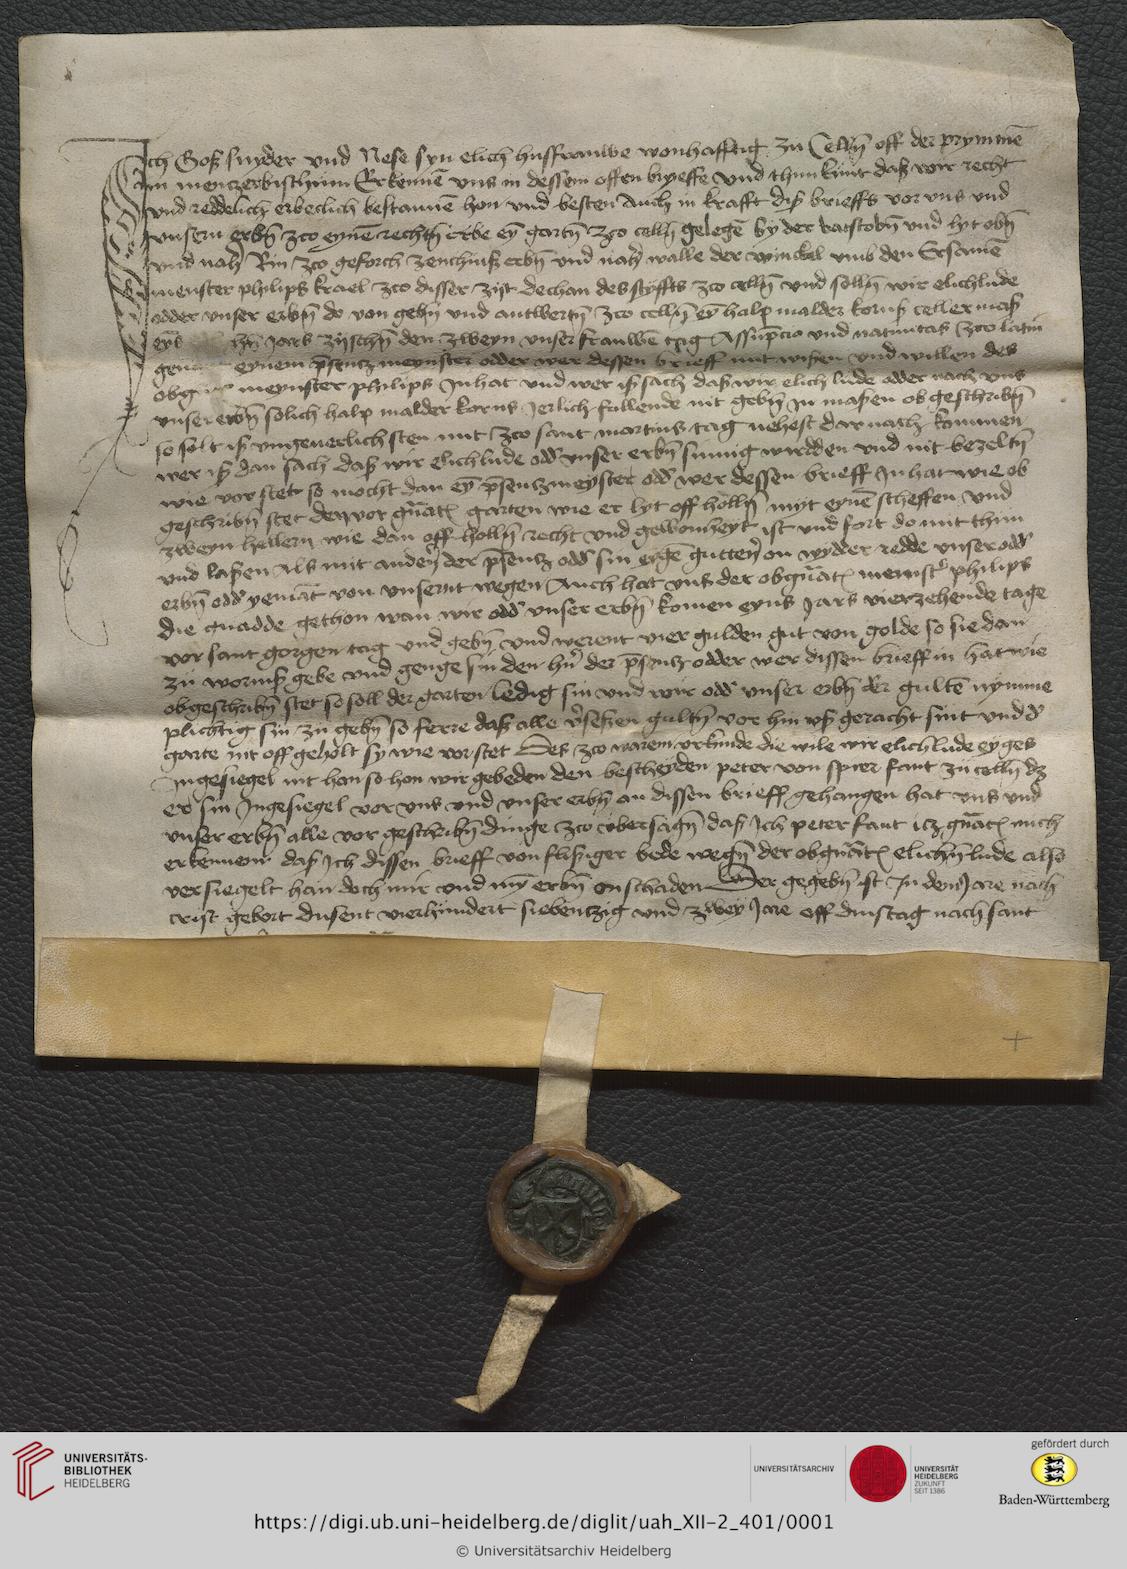 Ich Goß snyder vnd Nese syn elich husfrauwe wonhafftig zu Cellñ off der prymmē
im menczerbisthum Erkennē vns in dessem offen bryeffe vnd thun kunt daß wir recht
vnd reddelich erbeclich bestannē hon vnd besten auch in krafft diß brieffs vor vns vnd
vnsern erbñ zco eynē rechtñ erbe eȳ gartñ zco cellñ gelegē by der batstobñ vnd lyt obñ
vnd nahͤ Rin zco geforch erbñ vnd nahͤ walle der winckel vmb den Ersamē
meyster philips krael zco disser zijt dechan des styffts zco cellñ vnd sollñ wir elichlude
odder vnser erbñ do von gebñ vnd antwertñ zco cellñ eȳ halp malder korns celler maß
Jars zijschñ den zweyn vnser frauwē tag Assūpcio vnd natiuitas zco latin
eynem p̄sentzmeynster odder wer dessen brieff mit wißen vnd willen des
meynster philips Inhat vnd wer iß sach daß wir elich lude odder nach vns
vnser erbñ solich halp malder korns Jerlich fallende nit gebñ in maßen ob geschribñ
so solt iß vngeuerlich sten mit zco sant martins tag nehest dar nach kommen
wer iß dan sach daß wir elichlude odđ vnser erbñ sumig wirdden vnd nit bezeltñ
wie vor stet so mocht dan eȳ p̄sentzmeyster odđ wer dessen brieff Inhat wie ob
geschribñ stet den vor gn̄atꝭ garten wie er lyt off hollñ myt eynē scheffen vnd
zweyn hellern wie dan off hollñ recht vnd gewonheyt ist vnd fort do mit thun
vnd laßen als mit andern̄ der p̄sentz odđ sin eygē guttern̄ on wydder redde vnser odđ
erbñ odđ yemāt von vnsernt wegen Auch hat vns der obgn̄atꝭ meinst͛ philips
die gnadde gethon wan wir odđ vnser erbñ komen eyns Jars vierzehende tage
vor sant gorgen tag vnd gebñ vnd werent vier gulden gut von golde so sie dan
zu wormß gebe vnd genge sin den hn̄ der p̄sentz odder wer dissen brieff in hat wie
obgeschribñ stet so soll der garten ledig sin vnd wir odđ vnser erbñ der gultē nymme
plichtig sin zu gebñ so ferre daß alle v͛seßen gultñ vor hin vß geracht sint vnd đ
garte nit off geholt sy wie vor stet Des zco warem vrkunde die wile wir elich lude eyges
Ingesiegel nit han so hon wir gebeden den bescheyden peter von spier faut zu cellñ dz
er sin Ingesiegel vor vns vnd vnser erbñ an dissen brieff gehangen hat vns vnd
vnser erbñ alle vor geschribñ dinge zco vbersagñ daß Ich peter faut itz gn̄atꝭ mich
erkennen daß Ich dissen brieff von flißiger bede wegñ der obgn̄atꝭ elichñ lude also
versiegelt han doch mir vnd mȳ erbñ on schaden Der gegebñ ist In dem Jare nach
crist gebort dusent vierhundert siebenczig vnd zwey Jare off dinstag nach sant
UNIVERSITÄTS-
BIBLIOTHEK
HEIDELBERG
UNIVERSITÄTSARCHIV
UNIVERSITÄT
HEIDELBERG
ZUKUNFT
SEIT 1386
gefördert durch
Baden-Württemberg
https://digi.ub.uni-heidelberg.de/diglit/uah_XII-2_401/0001
© Universitätsarchiv Heidelberg